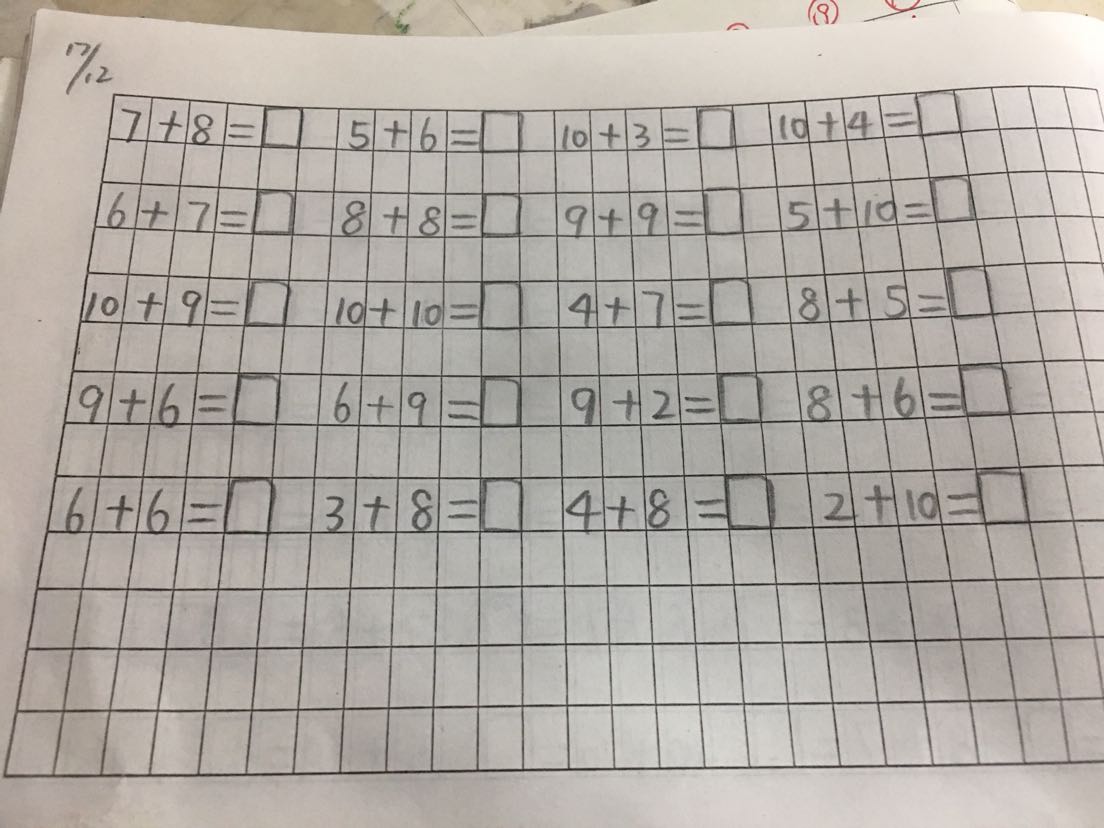 17/12
7+8=□ 5+6=□ 10+3=□ 10+4=□
6+7=□ 8+8=□ 9+9=□ 5+10=□
10+9=□ 10+10=□ 4+7=□ 8+5=□
9+6=□ 6+9=□ 9+2=□ 8+6=□
6+6=□ 3+8=□ 4+8=□ 2+10=□